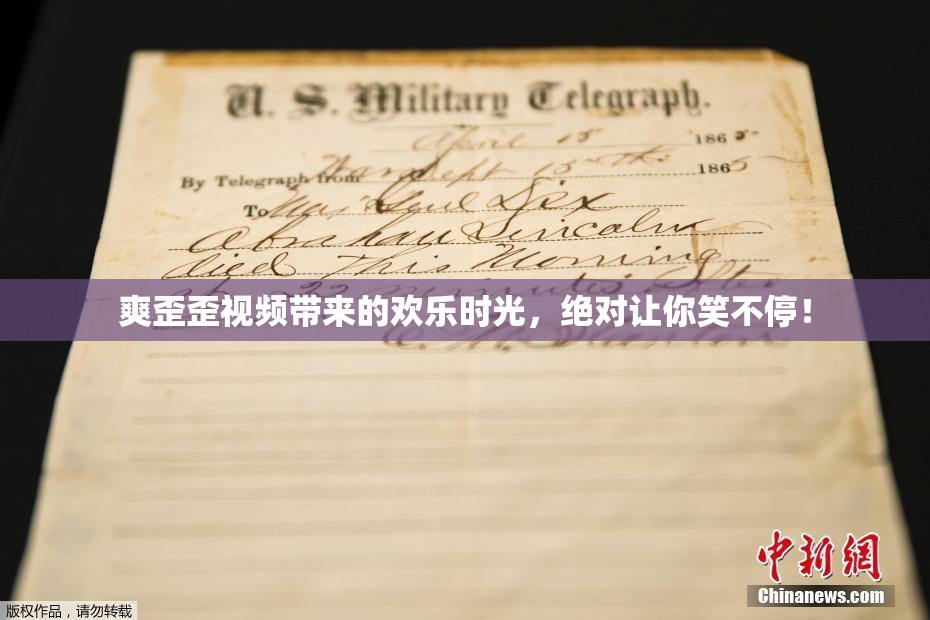 U. S. Military Telegraph.
April 15 1865
By Telegraph from War Dept 15th 1865
To Maj Genl Dix
Abraham Lincoln
died This Morning
at 22 minutes after
爽歪歪视频带来的欢乐时光，绝对让你笑不停！
E. M. Stanton
中新網
Chinanews.com
版权作品，请勿转载